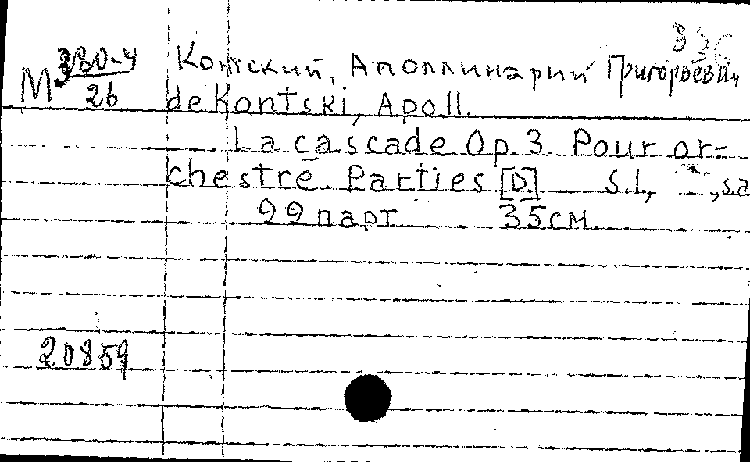 М 380-4/26
Контский, Аполлинарий Григорьевич
de Kontski, Apoll.
La cascade Op. 3. Pour or-
chestre. Parties [D.] S.l., ,s.a
99 парт 35 см.
20859